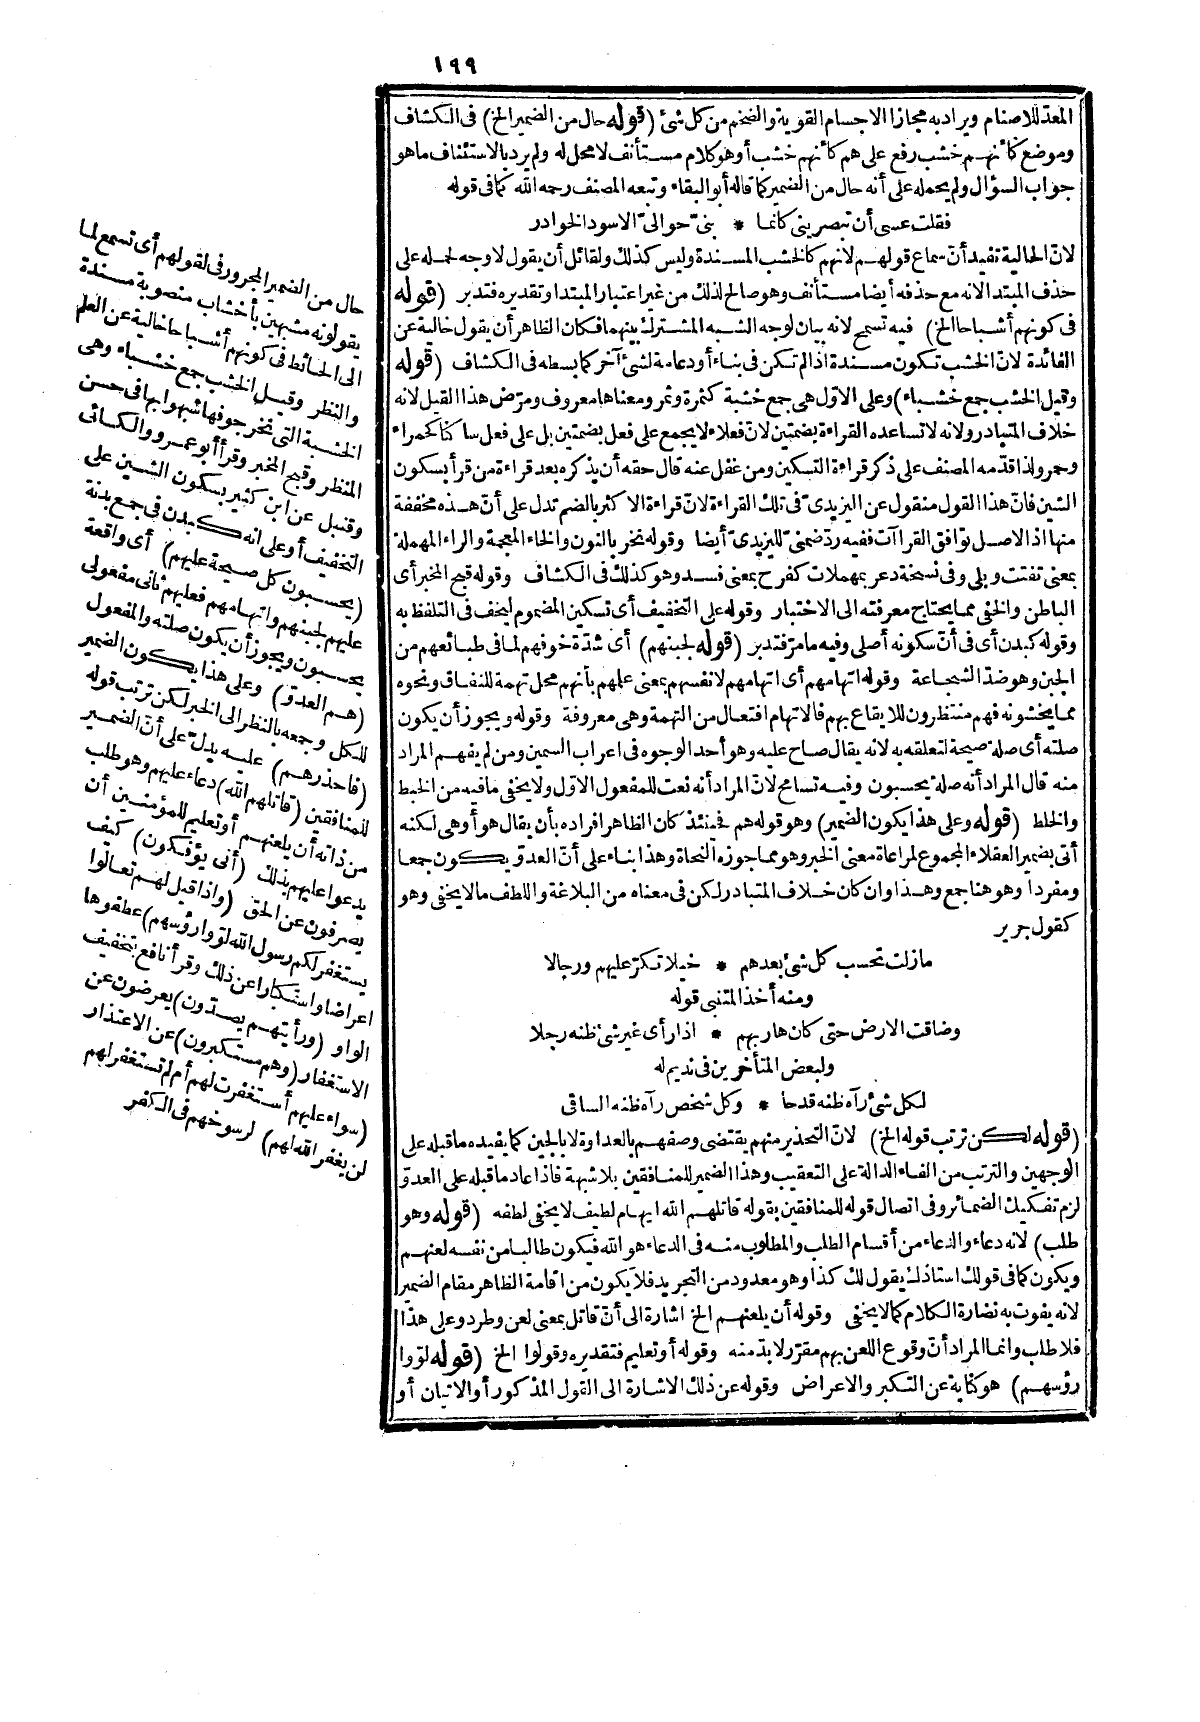 ١٩٩
المعدّ للاصنام ويراد به مجازا الاجسام القوية والضخم من كل شئ (قوله حال من الضمير الخ) فى الكشاف
وموضع كأنهم خشب رفع على هم كأنهم خشب أو هو كلام مستأنف لا محل له ولم يرد بالاستئناف ما هو
جواب السؤال ولم يحمله على أنه حال من الضمير كما قاله أبو البقاء وتبعه المصنف رحمه الله كما فى قوله
فقلت عسى أن تبصرينى كأنما * بنىّ حوالىّ الاسود الخوادر
لانّ الحالية تفيد أنّ سماع قولهم لانهم كالخشب المسندة وليس كذلك ولقائل أن يقول لا وجه لحمله على
حذف المبتدا لانه مع حذفه أيضا مستأنف وهو صالح لذلك من غير اعتبار المبتدا وتقديره فتدبر (قوله
فى كونهم أشباحا الخ) فيه تسمح لانه بيان لوجه الشبه المشترك بينهما فكان الظاهر أن يقول خالية عن
الفائدة لانّ الخشب تكون مسندة اذا لم تكن فى بناء أو دعامة لشئ آخر كما بسطه فى الكشاف (قوله
وقيل الخشب جمع خشباء) وعلى الاوّل هى جمع خشبة كثمرة وثمر ومعناها معروف ومرّض هذا القيل لانه
خلاف المتبادر ولانه لا تساعده القراءة بضمتين لانّ فعلاء لا يجمع على فعل بضمتين بل على فعل ساكنا كحمراء
وحمر ولذا قدّمه المصنف على ذكر قراءة التسكين ومن غفل عنه قال حقه أن يذكره بعد قراءة من قرأ بسكون
الشين فانّ هذا القول منقول عن اليزيدىّ فى تلك القراءة لانّ قراءة الاكثر بالضم تدل على أنّ هذه مخففة
منها اذ الاصل توافق القراآت ففيه ردّ ضمنىّ لليزيدىّ أيضا وقوله نخر بالنون والخاء المعجمة والراء المهملة
بمعنى تفتت وبلى وفى نسخة دعر بمهملات كفرح بمعنى فسد وهو كذلك فى الكشاف وقوله قبح المخبر أى
الباطن والخفى مما يحتاج معرفته الى الاختبار وقوله على التخفيف أى تسكين المضموم ليخف فى التلفظ به
وقوله كبدن أى فى أنّ سكونه أصلى وفيه ما مرّ فتدبر (قوله لجبنهم) أى شدّة خوفهم لما فى طبائعهم من
الجبن وهو ضدّ الشجاعة وقوله اتهامهم أى اتهامهم لانفسهم بمعنى علمهم بأنهم محل تهمة للنفاق ونحوه
مما يخشونه فهم منتظرون للايقاع بهم فالاتهام افتعال من التهمة وهى معروفة وقوله ويجوز أن يكون
صلته أى صلة صيحة لتعلقه به لانه يقال صاح عليه وهو أحد الوجوه فى اعراب السمين ومن لم يفهم المراد
منه قال المراد أنه صلة يحسبون وفيه تسامح لانّ المراد أنه نعت للمفعول الاوّل ولا يخفى ما فيه من الخبط
والخلط (قوله وعلى هذا يكون الضمير) وهو قوله هم فحينئذ كان الظاهر افراده بأن يقال هو أو هى لكنه
أتى بضمير العقلاء المجموع لمراعاة معنى الخبر وهو مما جوزه النحاة وهذا بناء على أنّ العدوّ يكون جمعا
ومفردا وهو هنا جمع وهذا وان كان خلاف المتبادر لكن فى معناه من البلاغة واللطف ما لا يخفى وهو
كقول جرير
مازلت تحسب كل شئ بعدهم * خيلا تكرّ عليهم ورجالا
ومنه أخذ المتنبى قوله
وضاقت الارض حتى كان هاربهم * اذا رأى غير شئ ظنه رجلا
ولبعض المتأخرين فى نديم له
لكل شئ رآه ظنه قدحا * وكل شخص رآه ظنه الساقى
(قوله لكن ترتب قوله الخ) لانّ التحذير منهم يقتضى وصفهم بالعداوة لا بالجبن كما يفيده ما قبله على
الوجهين والترتب من الفاء الدالة على التعقيب وهذا الضمير للمنافقين بلا شبهة فاذا عاد ما قبله على العدوّ
لزم تفكيك الضمائر وفى اتصال قوله للمنافقين بقوله قاتلهم الله ايهام لطيف لا يخفى لطفه (قوله وهو
طلب) لانه دعاء والدعاء من أقسام الطلب والمطلوب منه فى الدعاء هو الله فيكون طالبا من نفسه لعنهم
ويكون كما فى قولك استاذك يقول لك كذا وهو معدود من التجريد فلا يكون من اقامة الظاهر مقام الضمير
لانه يفوت به نضارة الكلام كما لا يخفى وقوله أن يلعنهم الخ اشارة الى أنّ قاتل بمعنى لعن وطرد وعلى هذا
فلا طلب وانما المراد أنّ وقوع اللعن بهم مقرّر لا بدّ منه وقوله أو تعليم فتقديره وقولوا الخ (قوله لوّوا
رؤسهم) هو كناية عن التكبر والاعراض وقوله عن ذلك الاشارة الى القول المذكور أو الاتيان أو
حال من الضمير المجرور فى لقولهم أى تسمع لما
يقولونه مشبهين بأخشاب منصوبة مسندة
الى الحائط فى كونهم أشباحا خالية عن العلم
والنظر وقيل الخشب جمع خشباء وهى
الخشبة التى نخر جوفها شبهوا بها فى حسن
المنظر وقبح المخبر وقرأ أبو عمرو والكسائى
وقنبل عن ابن كثير بسكون الشين على
التخفيف أو على انه كبدن فى جمع بدنة
(يحسبون كل صيحة عليهم) أى واقعة
عليهم لجبنهم واتهامهم فعليهم ثانى مفعولى
يحسبون ويجوز أن يكون صلته والمفعول
(هم العدوّ) وعلى هذا يكون الضمير
للكل وجمعه بالنظر الى الخبر لكن ترتب قوله
(فاحذرهم) عليه يدلّ على أنّ الضمير
للمنافقين (قاتلهم الله) دعاء عليهم وهو طلب
من ذاته أن يلعنهم أو تعليم للمؤمنين أن
يدعوا عليهم بذلك (أنى يؤفكون) كيف
يصرفون عن الحق (واذا قيل لهم تعالوا
يستغفر لكم رسول الله لوّوا رؤسهم) عطفوها
اعراضا واستكبارا عن ذلك وقرأ نافع بتخفيف
الواو (ورأيتهم يصدّون) يعرضون عن
الاستغفار (وهم مستكبرون) عن الاعتذار
(سواء عليهم أستغفرت لهم أم لم تستغفر لهم
لن يغفر الله لهم) لرسوخهم فى الكفر